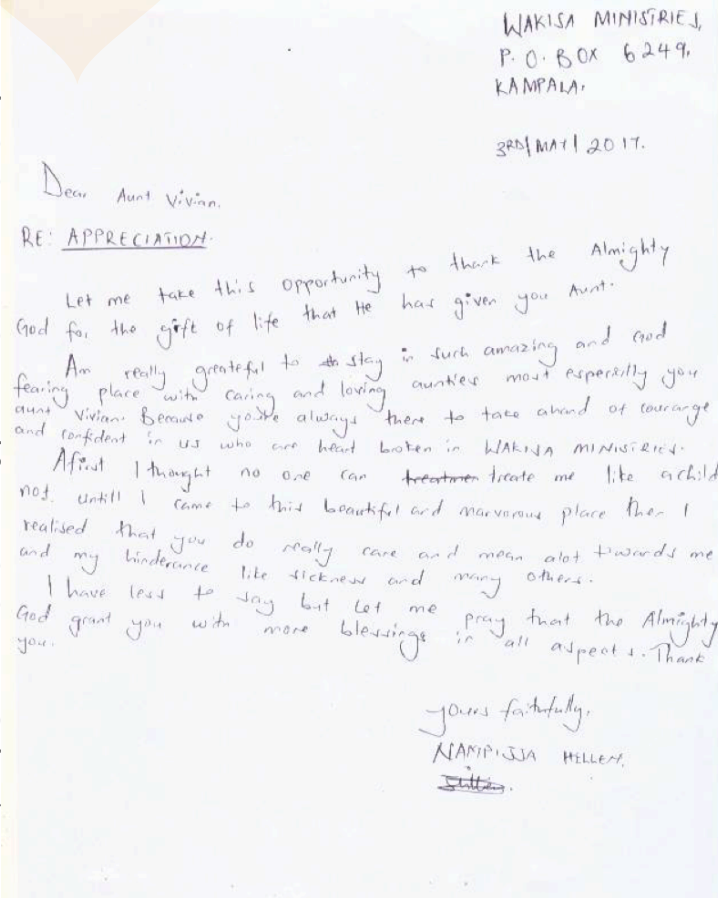 WAKISA MINISTRIES,
P. O. BOX 6249,
KAMPALA.
3RD/MAY/2017.
Dear Aunt Vivian.
RE: APPRECIATION.
Let me take this opportunity to thank the Almighty
God for the gift of life that He has given you Aunt.
Am really greateful to stay in such amazing and God
fearing place with caring and loving aunties most especially you
aunt Vivian. Because you've always there to take ahand of courage
and confident in us who are heart broken in WAKISA MINISTRIES.
Afirst I thought no one can treatmen treate me like achild
not. untill I came to this beautiful and marvorous place then I
realised that you do really care and mean alot towards me
and my hinderance like sickness and many others.
I have less to say but let me pray that the Almighty
God grant you with more blessings in all aspects. Thank
you.
yours faithfully,
NAMPIJJA HELLEN.